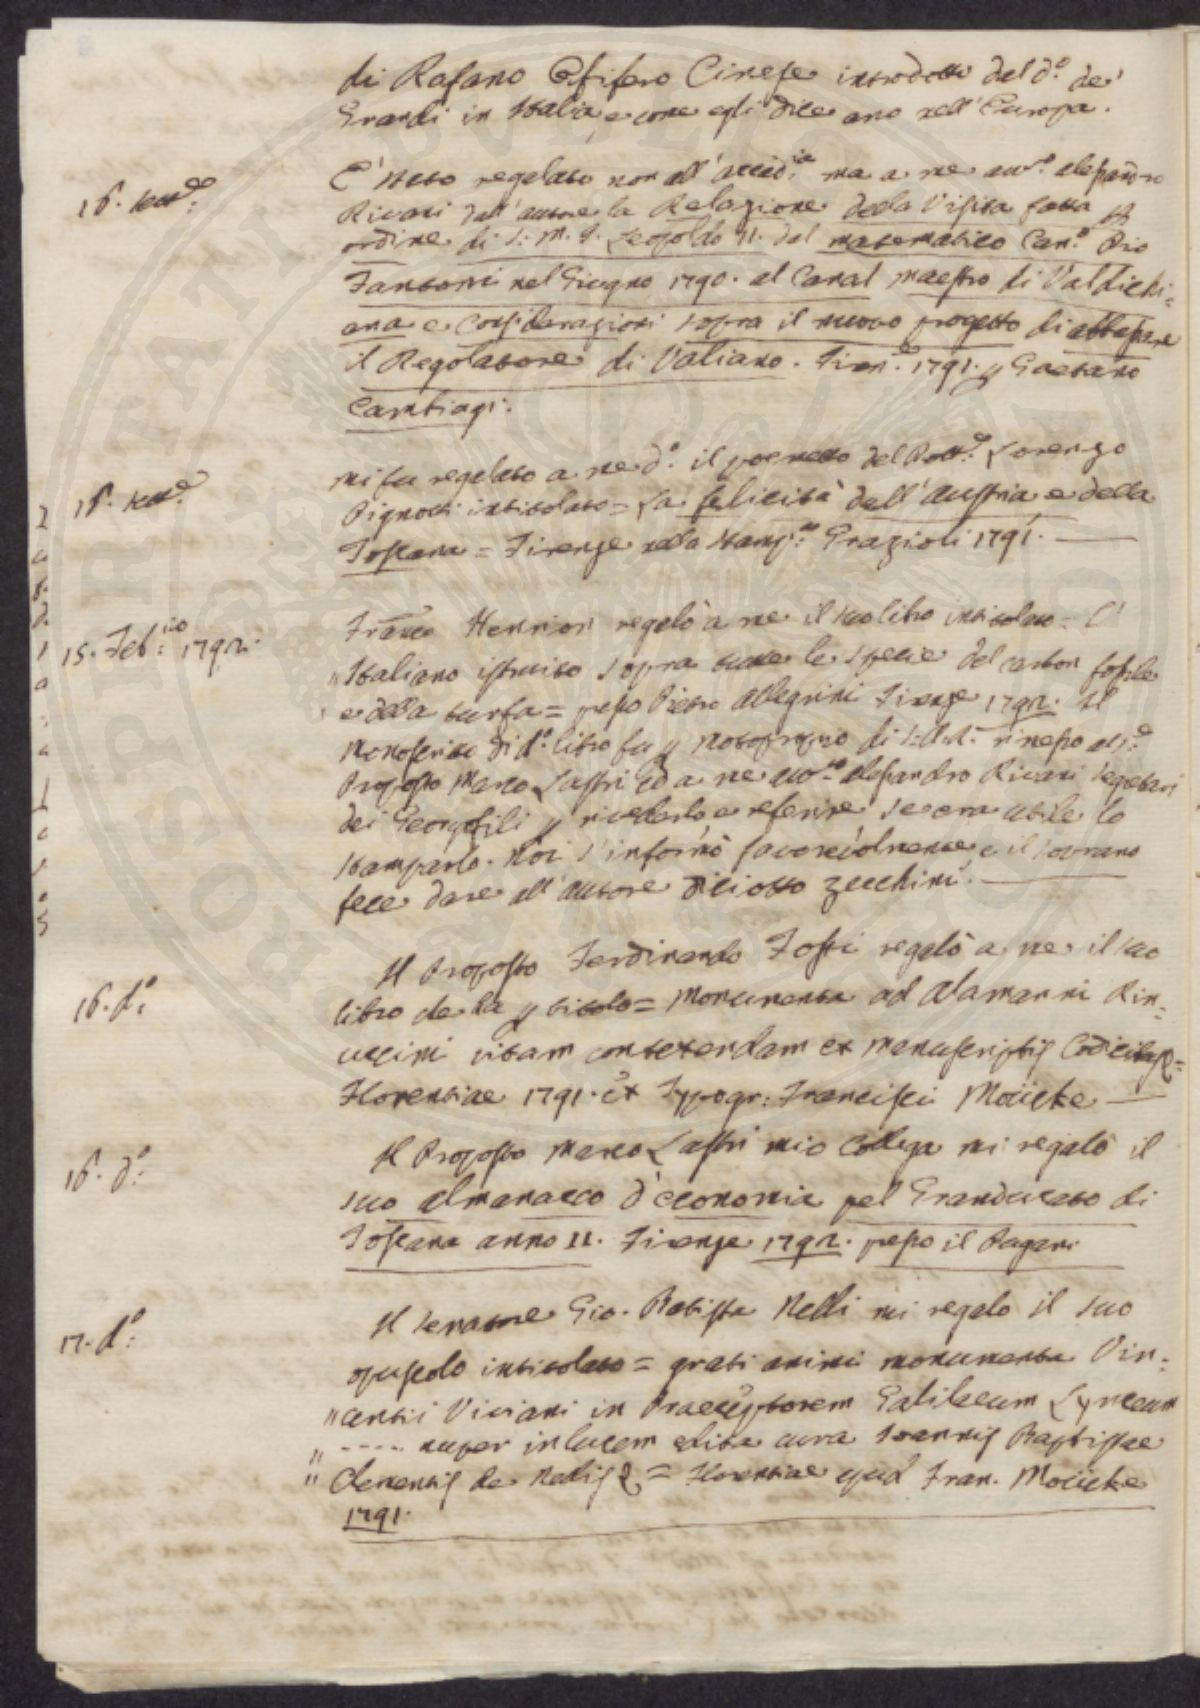 di Rafano Oleifero Cinese introdotto dal d.º de'
Grandi in Italia, e come egli dice anco nell'Europa.
16. 
È stato regalato non all'accad.ia ma a me avv.º Alessandro
Rivani dall'autore la Relazione della Visita fatta p
ordine di S. M. I. Leopoldo II. dal matematico Can.º Pio
Fantoni nel Giugno 1790. al Canal maestro di Valdichi=
ana e considerazioni sopra il nuovo progetto di abbassare
il Regolatore di Valiano. Firen.e 1791. p Gaetano
Cambiagi.
18. 
mi fu regalato a me d.º il poemetto del Dott.e Lorenzo
Pignotti intitolato = La felicità dell'Austria e della
Toscana = Firenze nella Stamp.a Grazioli 1791.
15. Feb:io 1792.
Franco Henrion regalò a me il suo libro intitolato = L'
"Italiano istruito sopra tutte le specie del carbon fossile
" e della turfa = presso Pietro Allegrini Firenze 1792. Il
Monoscritto di d.º libro fu p motoproprio di S. A. R. rimesso al S.e
Proposto Marco Lastri ed a me avv.to Alessandro Rivani segretari
dei Georgofili p rivederlo e referire se era utile lo
stamparlo. Noi s'informò favorevolmente e il sovrano
fece dare all'autore diciotto zecchini.
16. d.º
Il Proposto Ferdinando Fossi regalò a me il suo
libro che ha p titolo = Monumenta ad Alamanni Rin=
uccini vitam contexendam ex manuscriptis Codicibus =
Florentiae 1791. ex Typogr: Francisci Moücke
16. d.º
Il Proposto Marco Lastri mio collega mi regalò il
suo almanacco d'economia pel Granducato di
Toscana anno II. Firenze 1792. presso il Pagani
17. d.º
Il Senatore Gio. Batista Nelli mi regalo il suo
opuscolo intitolato = grati animi monumenta Vin=
" centii Viviani in Praeceptorem Galilaeum Lynceum
" ---- nuper in lucem edita cura Ioannis Baptistae
" Clementis de Nellis = Florentiae apud Fran. Moücke
1791.